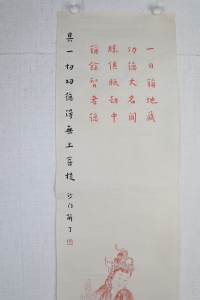 一日稱地藏
功德大名聞
勝俱胝劫中
稱餘智者德
具一切功德淨無上菩提 沙門